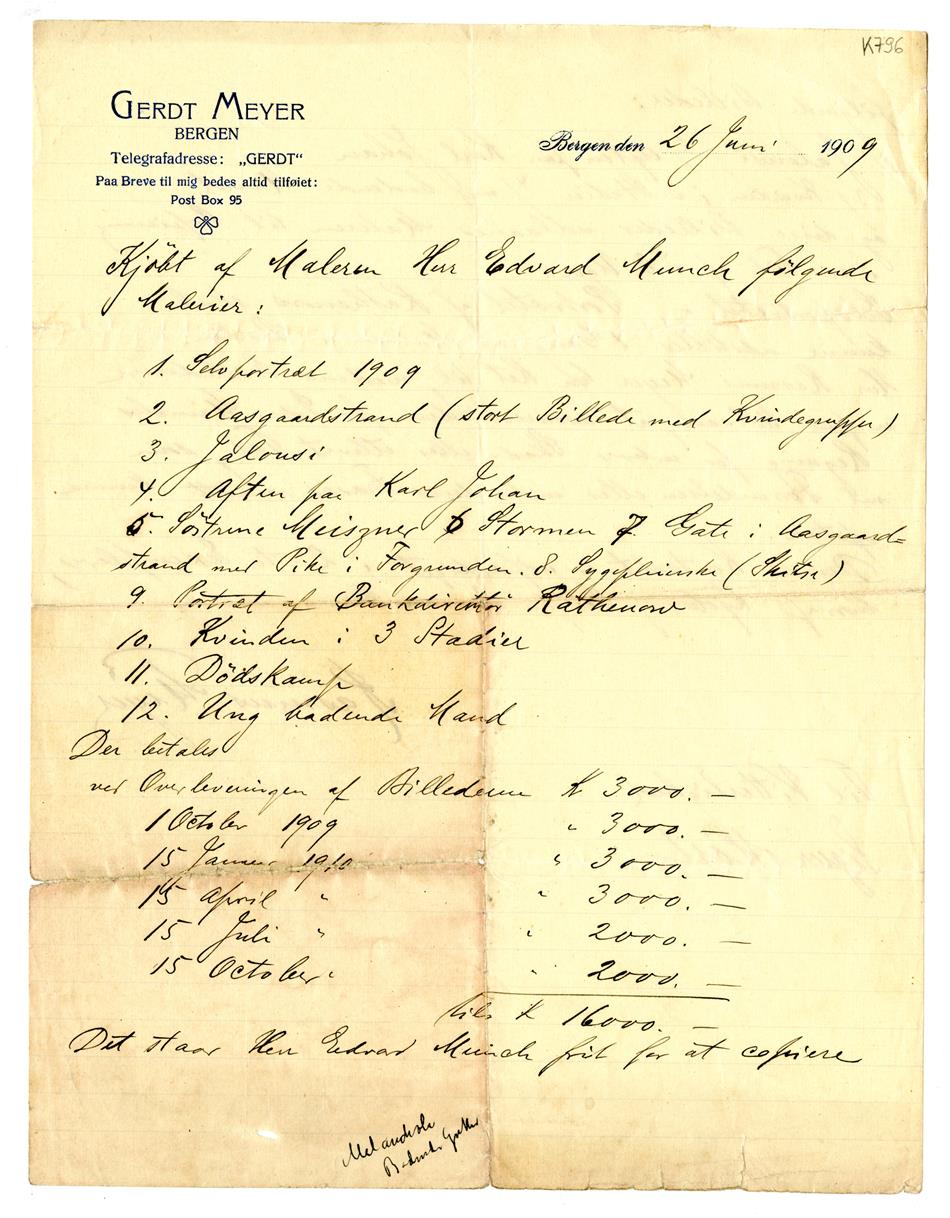 K796
GERDT MEYER
BERGEN
Telegrafadresse: „GERDT“
Paa Breve til mig bedes altid tilføiet:
Post Box 95
Bergen den 26 Juni 1909
Kjöbt af Maleren Herr Edvard Munch følgende
Malerier:
1. Selvportræt 1909
2. Aasgaardstrand (stort Billede med Kvindegruppe)
3. Jalousi
4. Aften paa Karl Johan
5. Söstrene Meiszner 6 Stormen 7. Gate i Aasgaard=
strand med Pike i Forgrunden. 8. Sygepleierske (Skitse)
9. Portræt af Bankdirektör Rathenow
10. Kvinden i 3 Stadier
11. Dödskamp
12. Ung badende Mand
Der betales
ved Overleveringen af Billederne K 3000. —
1 October 1909 " 3000. —
15 Januar 1910 " 3000. —
15 April " " 3000. —
15 Juli " " 2000. —
15 October " " 2000. —
tils K 16000. —
Det staar Herr Edvard Munch frit for at copiere
Melancholi